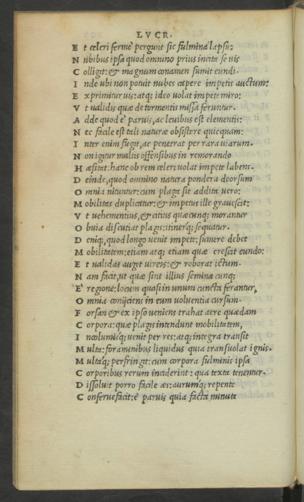 LVCR.
E t celeri fermè pergunt sic fulmina lapsu;
N ubibus ipsa quod omnino prius incita se uis
C olligit: & magnum conamen sumit eundi.
I nde ubi non potuit nubes capere impetis auctum:
E xprimitur uis: atq; ideo uolat impete miro:
V t ualidis quæ de tormentis missa feruntur.
A dde quod è paruis, ac leuibus est elementis:
N ec facile est tali naturæ obsistere quicquam:
I nter enim fugit, ac penetrat per rara uiarum.
N on igitur multis offensibus in remorando
H æsitat: hanc ob rem celeri uolat impete labens.
D einde, quod omnino natura pondera deorsum
O mnia nituntur: cum plaga sit addita uero;
M obilitas duplicatur: & impetus ille grauescit:
V t uehementius, & citius quæcunq; morantur
O buia discutiat plagis: itinerq; sequatur.
D eniq; quod longo uenit impete; sumere debet
M obilitatem; etiam atq; etiam quæ crescit eundo:
E t ualidas auget uires: & roborat ictum.
N am facit, ut quæ sint illius semina cunq;
E' regione: locum quasi in unum cuncta ferantur,
O mnia coniiciens in eum uoluentia cursum.
F orsan & ex ipso ueniens trahat aere quædam
C orpora: quæ plagis intendunt mobilitatem,
I ncolumisq; uenit per res: atq; integra transit
M ulta: foraminibus liquidus quia transuolat ignis.
M ultaq; perfringit: cum corpora fulminis ipsa
C orporibus rerum inciderint: qua texta tenentur.
D issoluit porro facile æs: aurumq; repente
C onferuefacit: è paruis quia facta minute